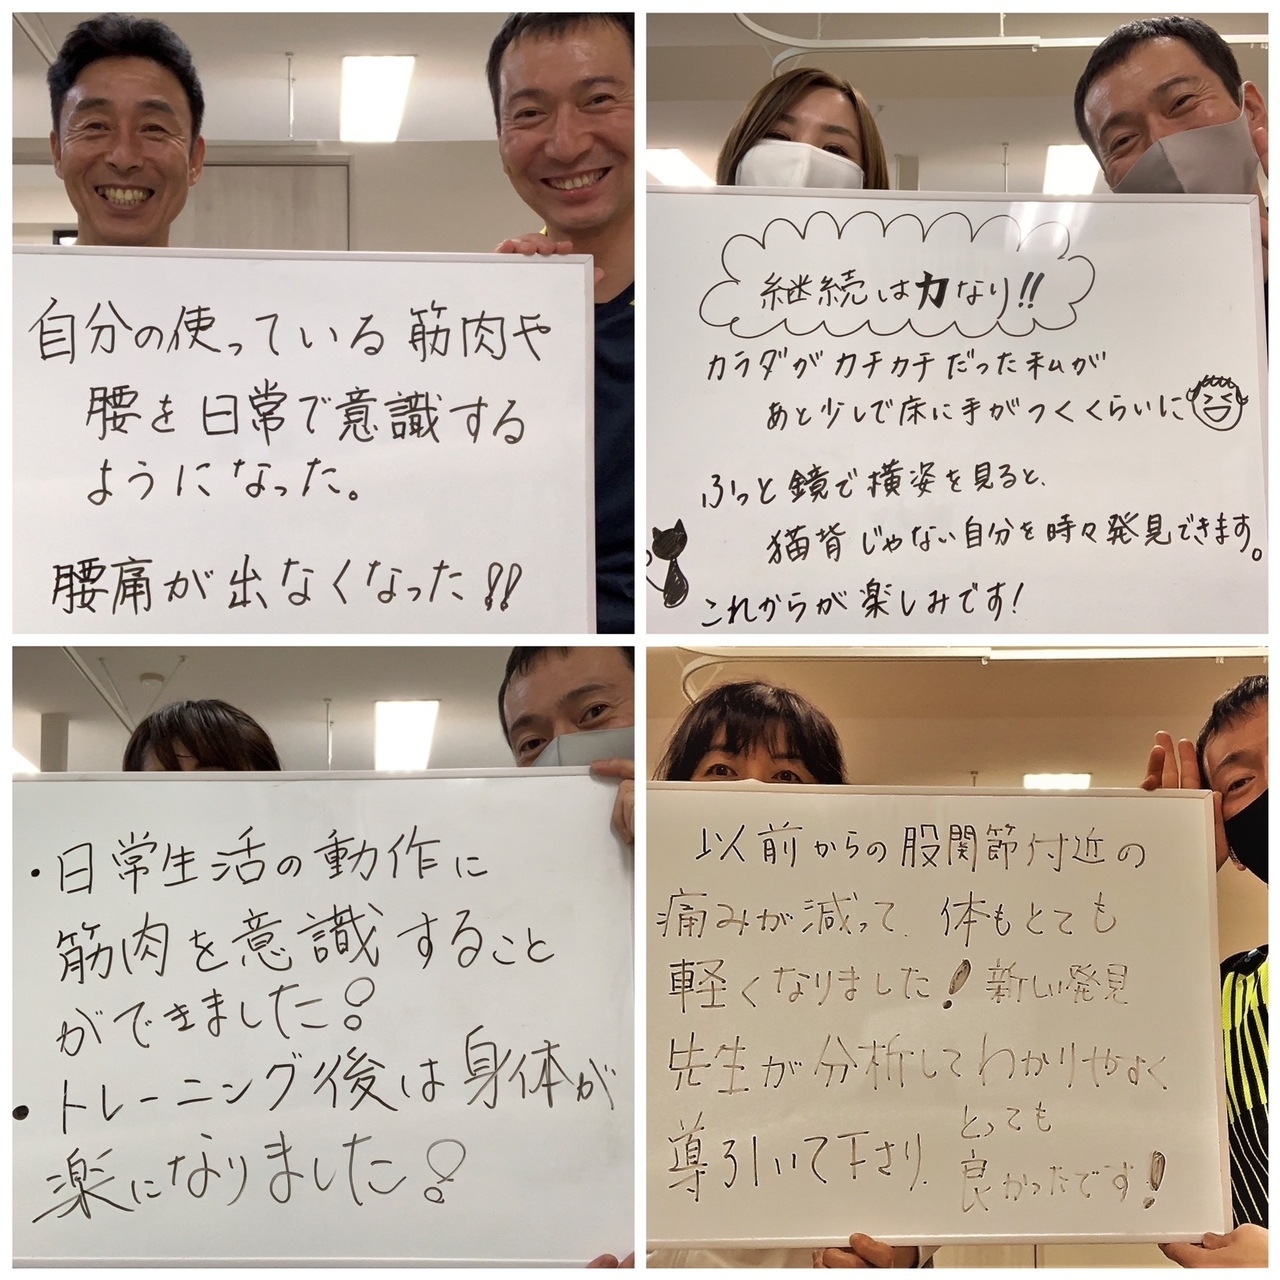 自分の使っている筋肉や
腰を日常で意識する
ようになった。
腰痛が出なくなった!!
継続は力なり!!
カラダがカチカチだった私が
あと少しで床に手がつくくらいに
ふっと鏡で横姿を見ると、
猫背じゃない自分を時々発見できます。
これからが楽しみです!
・日常生活の動作に
筋肉を意識すること
ができました!
・トレーニング後は身体が
楽になりました!
以前からの股関節付近の
痛みが減って、体もとても
軽くなりました!新しい発見
先生が分析してわかりやすく
導引いて下さり、とっても
良かったです!